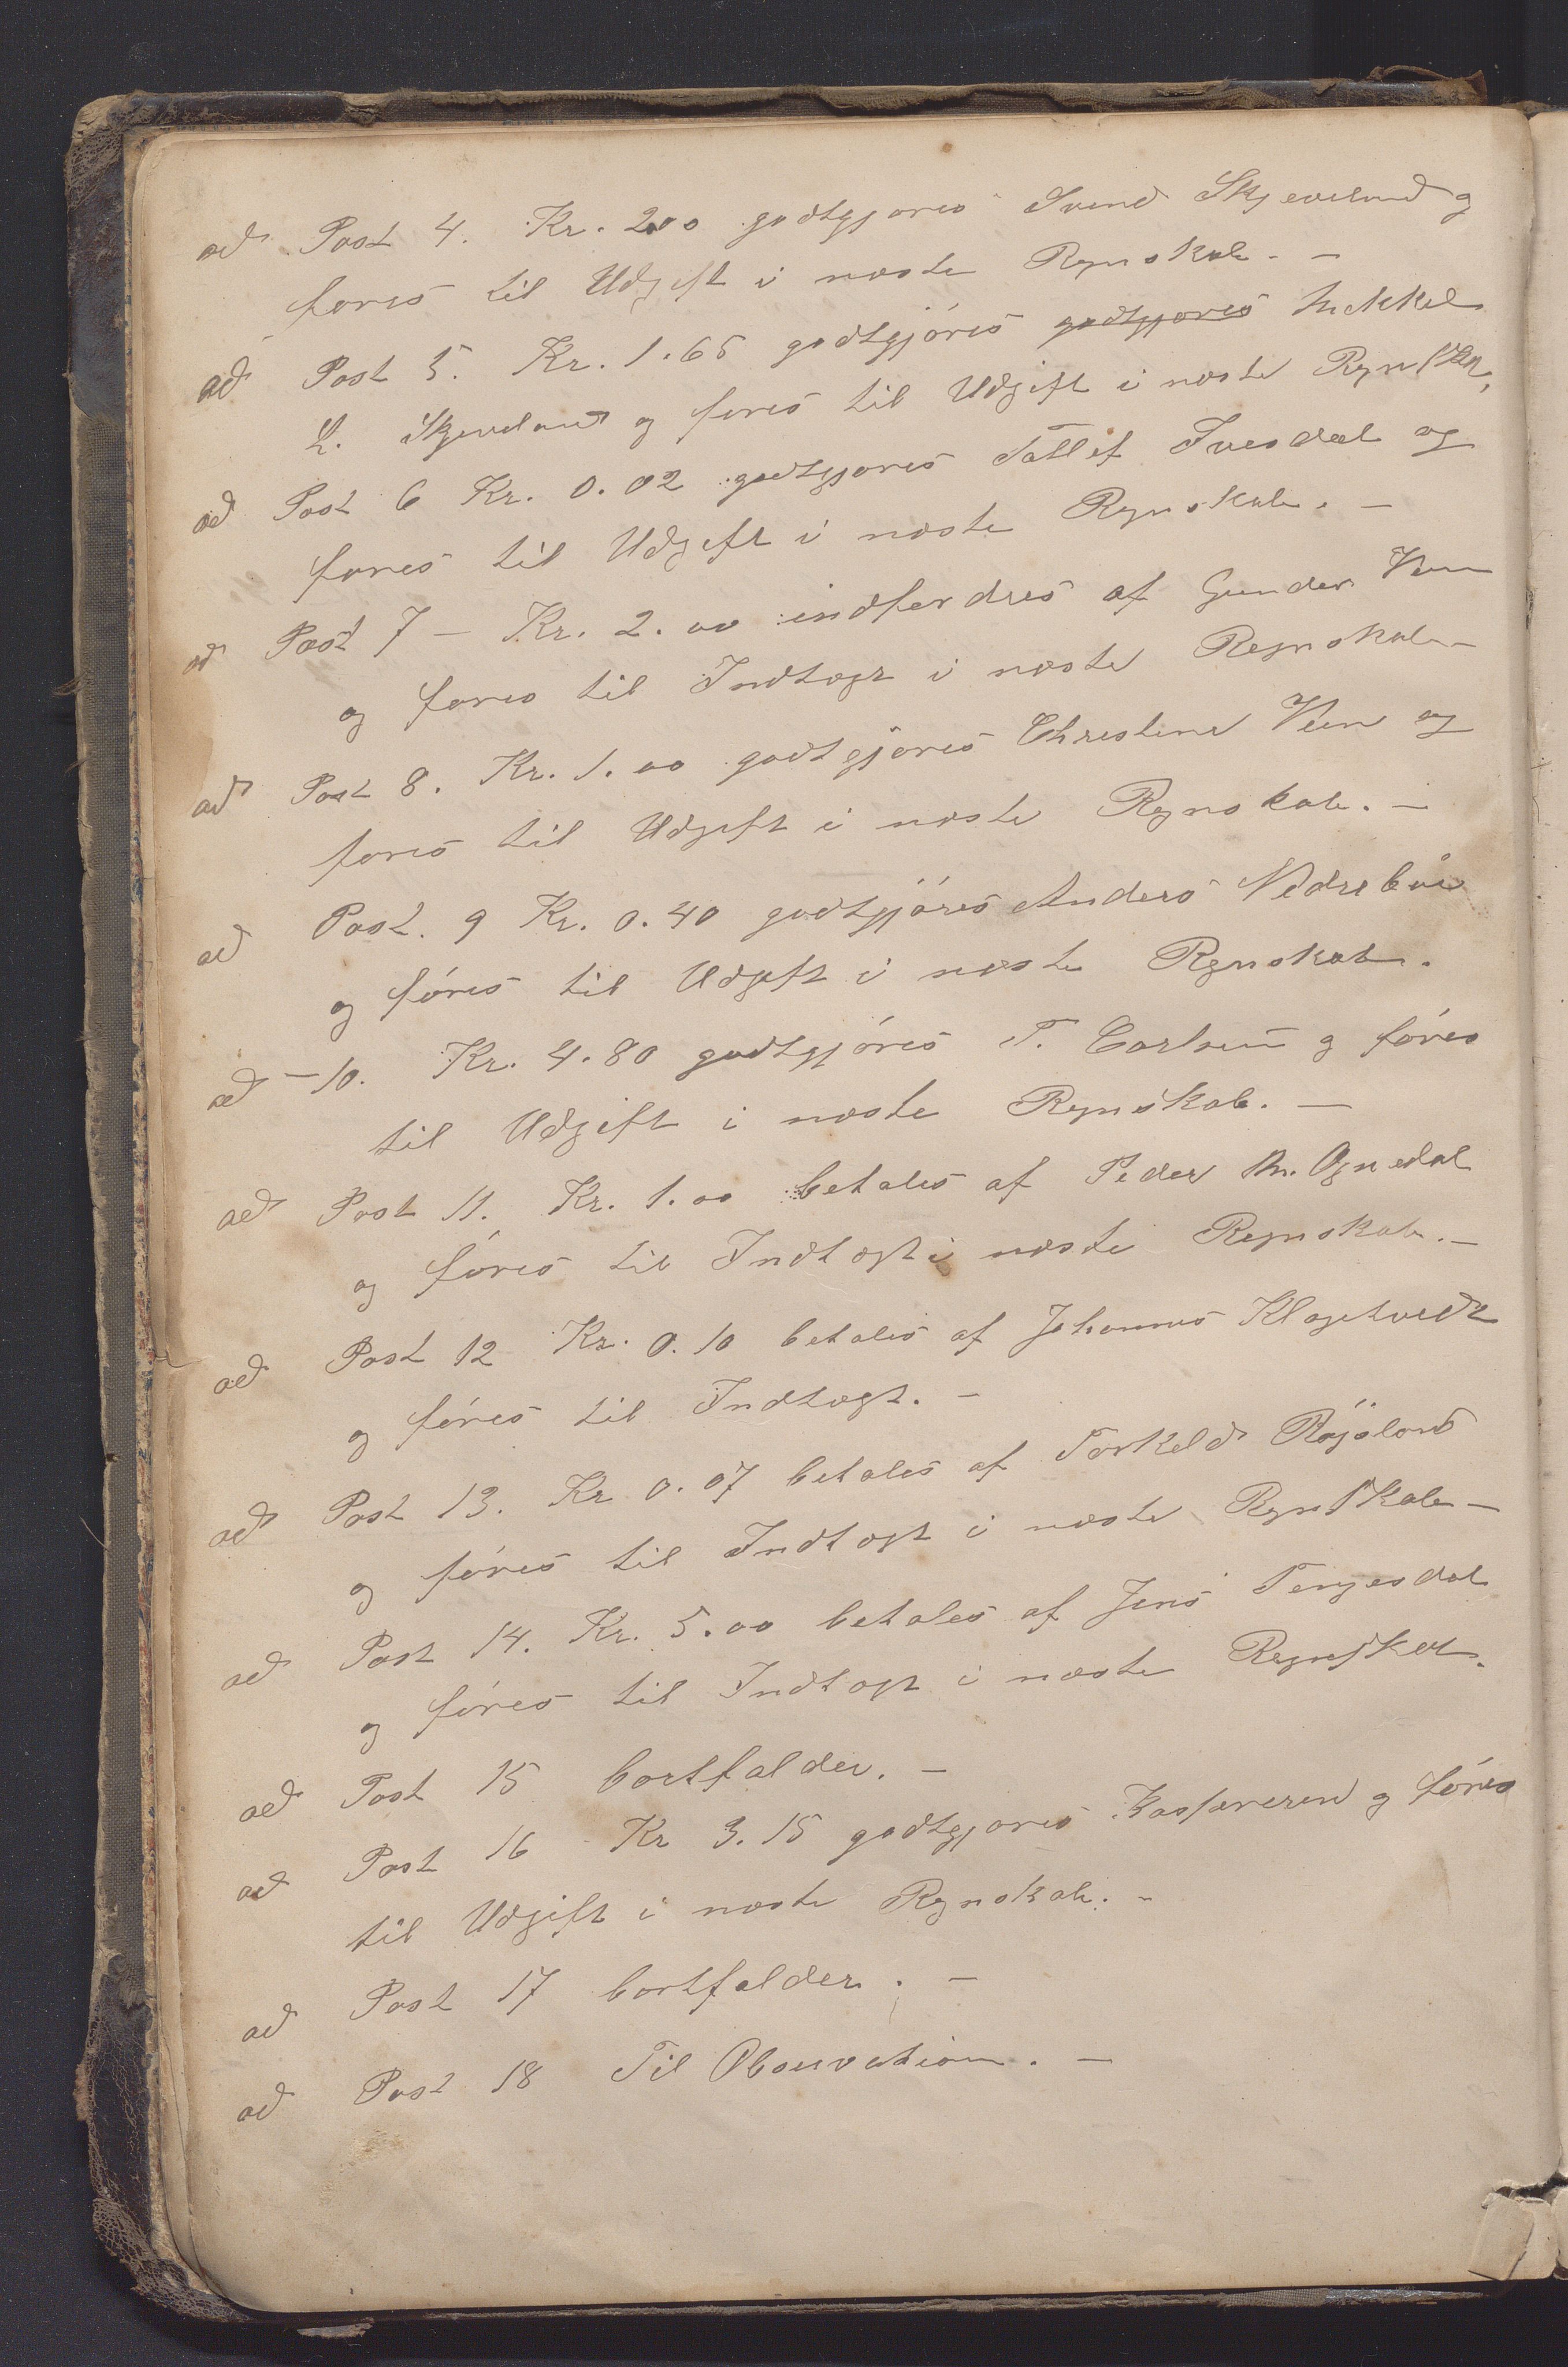 ad Post 4. Kr. 2.00 godtgjøres Svend Skjeveland og
føres til Udgift i næste Regnskab. -
ad Post 5. Kr. 1.65 godtgjøres godtgjøres Mikkel
L. Skjeveland og føres til Udgift i næste Regnskab,
ad Post 6 Kr. 0.02 godtgjøres Tollef Ivesdal og
føres til Udgift i næste Regnskab. -
ad Post 7 - Kr. 2.00 indfordres af Gunder Veen
og føres til Indtægt i næste Regnskab -
ad Post 8. Kr. 1.00 godtgjøres Christine Veen og
føres til Udgift i næste Regnskab. -
ad Post. 9 Kr. 0.40 godtgjøres Anders Nedrebøe
og føres til Udgift i næste Regnskab.
ad - 10. Kr. 4.80 godtgjøres T. Carlsen og føres
til Udgift i næste Regnskab. -
ad Post 11. Kr. 1.00 betales af Peder M. Ognedal
og føres til Indtægt i næste Regnskab. -
ad Post 12 Kr. 0.10 betales af Johannes Klagetvedt
og føres til Indtægt. -
ad Post 13. Kr 0.07 betales af Torkeld Røjsland
og føres til Indtægt i næste Regnskab -
ad Post 14. Kr. 5.00 betales af Jens Tengesdal
og føres til Indtægt i næste Regnskab.
ad Post 15 bortfalder. -
ad Post 16 Kr 3.15 godtgjøres Kaspersen og føres
til Udgift i næste Regnskab. -
ad Post 17 bortfalder. -
ad Post 18 Til Observation. -